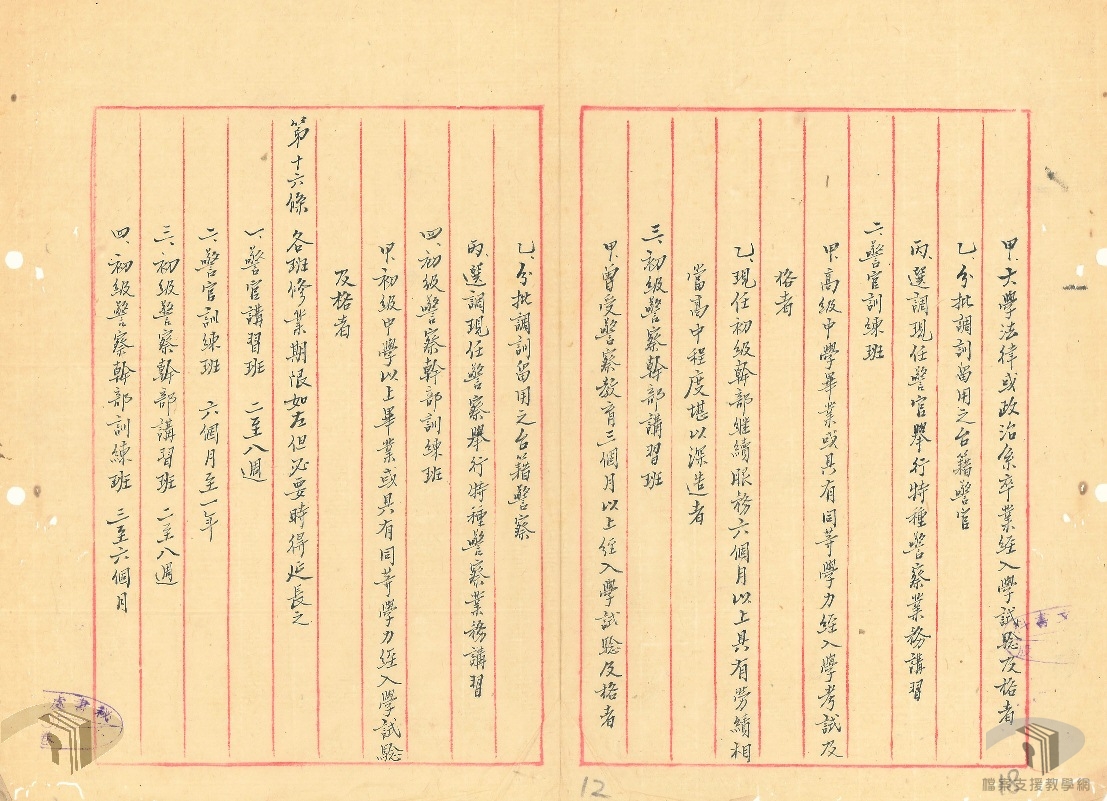 甲、大學法律或政治系卒業經入學試驗及格者
乙、分批調訓留用之台籍警官
丙、選調現任警官舉行特種警察業務講習
二、警官訓練班
甲、高級中學畢業或具有同等學力經入學考試及
格者
乙、現任初級幹部継續服務六個月以上具有勞績相
當高中程度堪以深造者
三、初級警察幹部講習班
甲、曾受警察教育三個月以上經入學試驗及格者
乙、分批調訓留用之台籍警察
丙、選調現任警察舉行特種警察業務講習
四、初級警察幹部訓練班
甲、初級中學以上畢業或具有同等學力經入學試驗
及格者
第十六條 各班修業期限如左但必要時得延長之
一、警官講習班 二至八週
二、警官訓練班 六個月至一年
三、初級警察幹部講習班 二至八週
四、初級警察幹部訓練班 三至六個月
12
檔案支援教學網